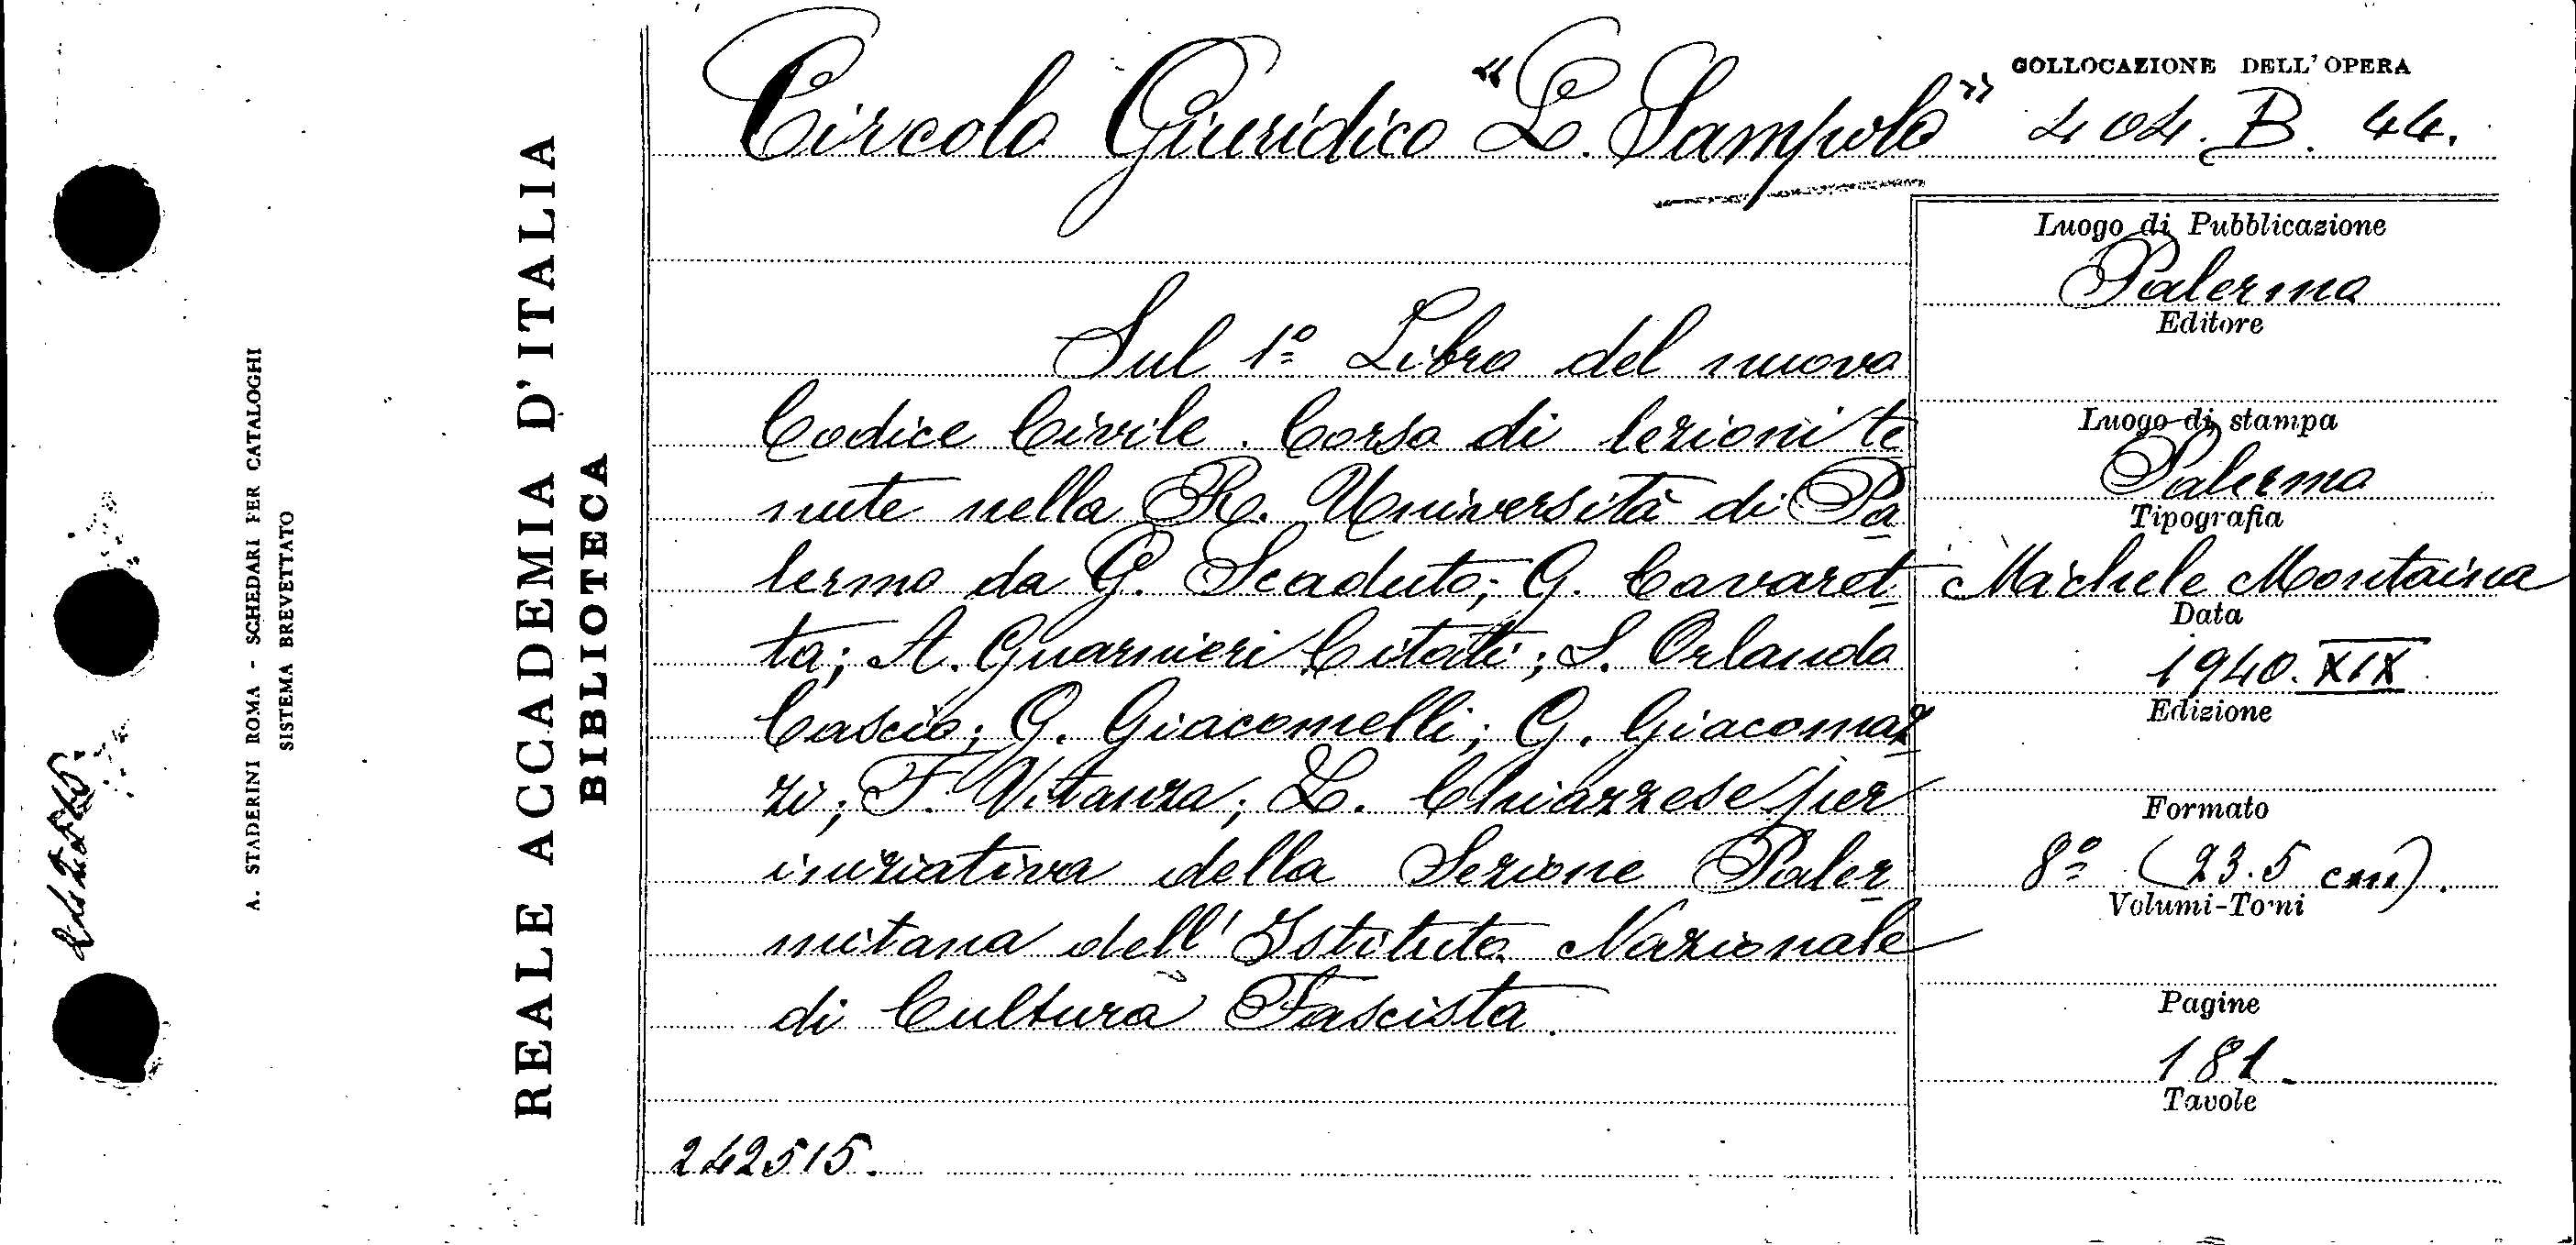 Circolo Giuridico "L. Sampolo"
COLLOCAZIONE DELL'OPERA
404. B. 44.
Sul 1º Libro del nuovo
Codice Civile. Corso di lezioni te
nute nella R. Università di Pa
lermo da G. Scaduto; G. Cavaret
ta; A. Guarnieri Citati; S. Orlando
Cascio; G. Giacomelli; G. Giacomaz
zi; F. Vitanza; L. Chiazzese per
iniziativa della Sezione Paler
mitana dell'Istituto Nazionale
di Cultura Fascista.
242515.
Luogo di Pubblicazione
Palermo
Editore
Luogo di stampa
Palermo
Tipografia
Michele Montaina
Data
1940. XIX
Edizione
Formato
8º (23.5 cm).
Volumi-Tomi
Pagine
181.
Tavole
REALE ACCADEMIA D'ITALIA
BIBLIOTECA
A. STADERINI ROMA - SCHEDARI PER CATALOGHI
SISTEMA BREVETTATO